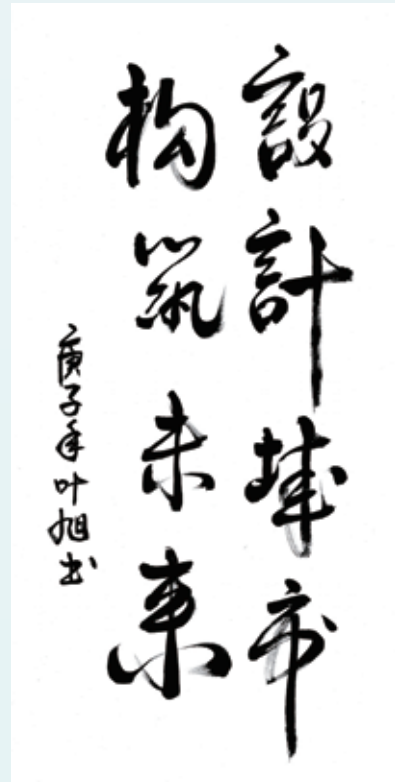 設計城市
构筑未来
庚子年叶旭书